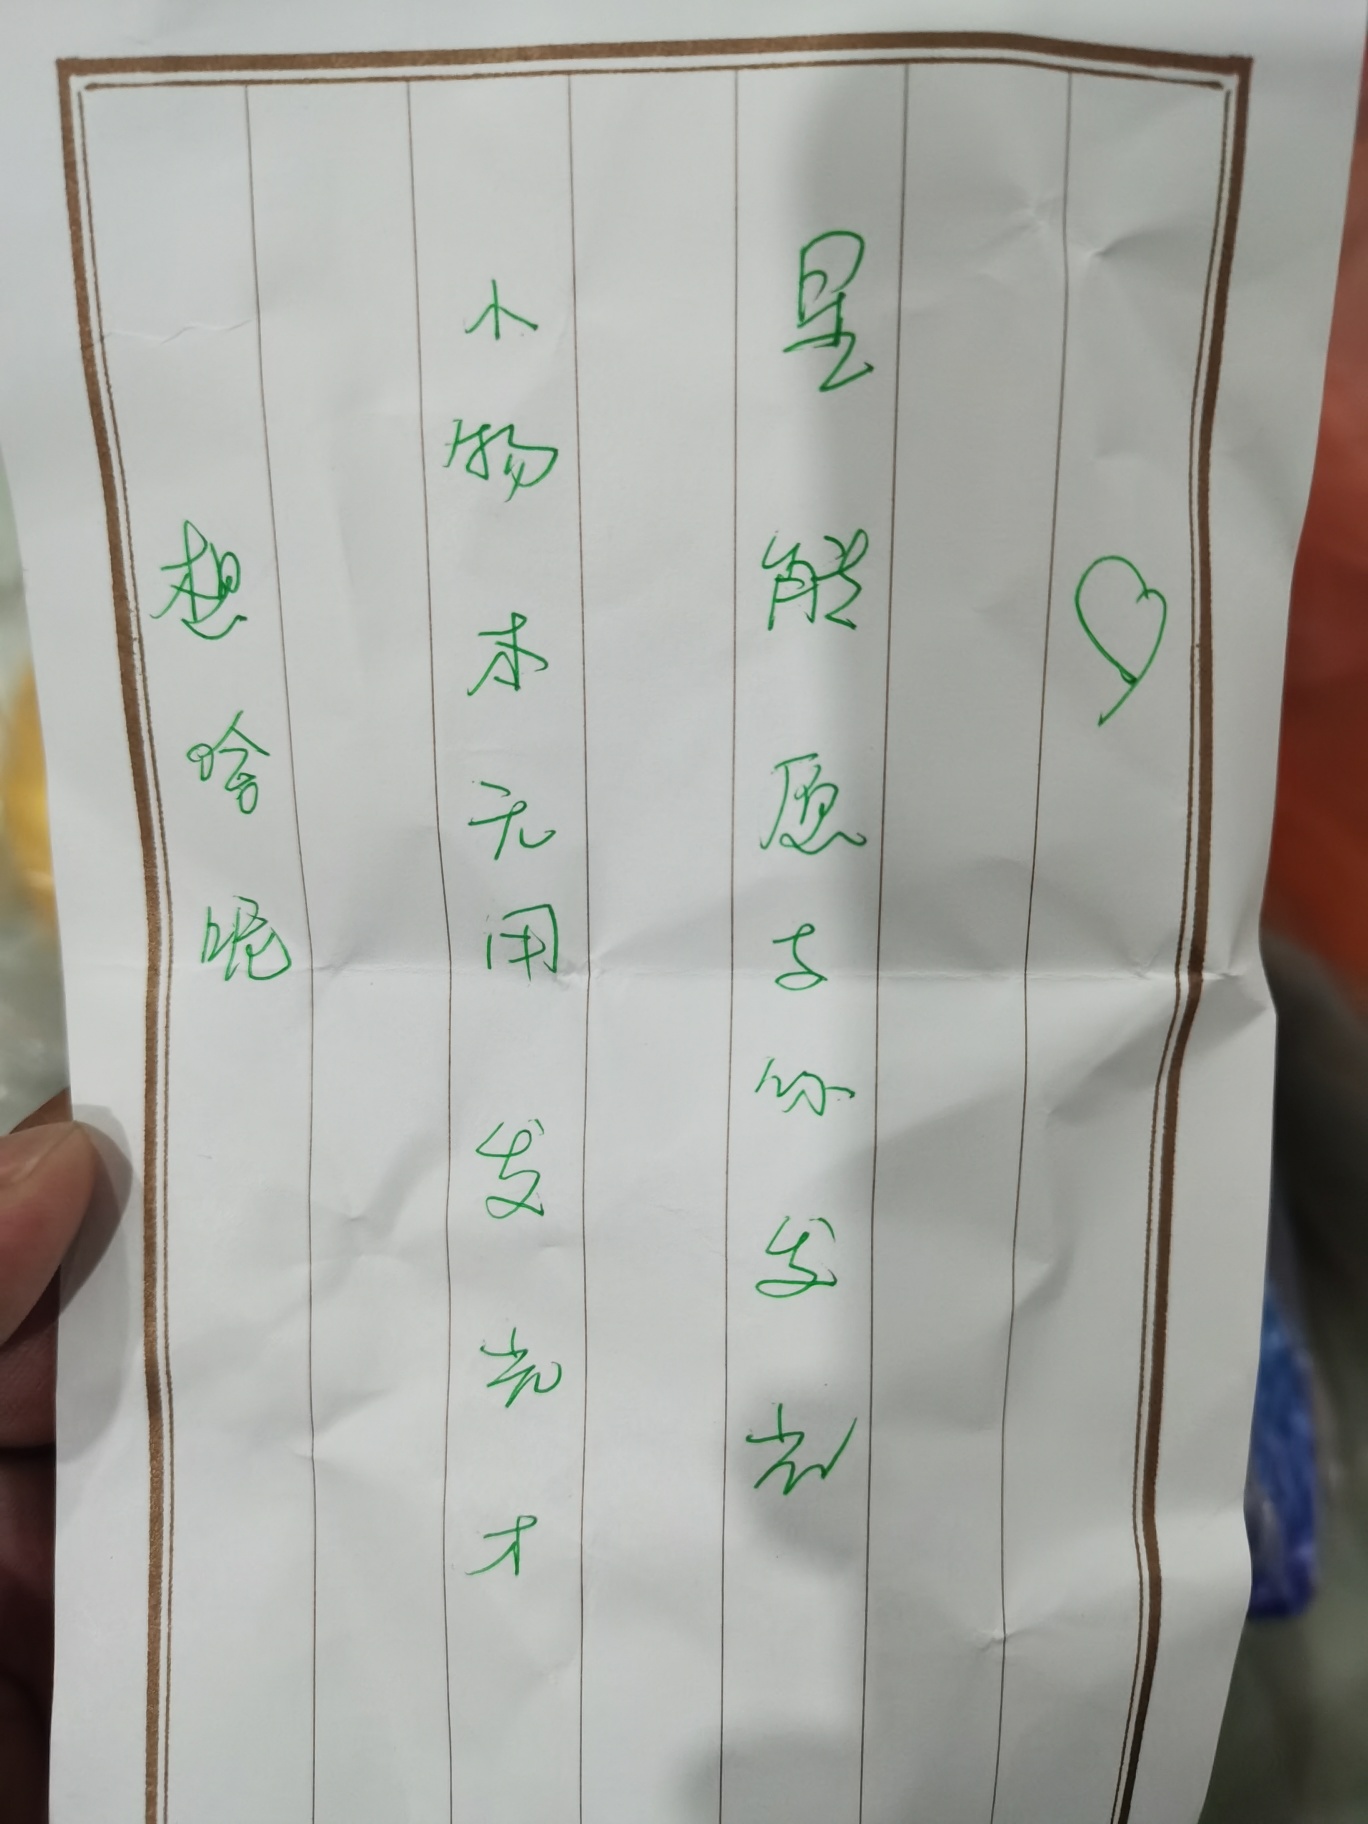 星能愿与你发光
小肠本无用发光才
想啥呢